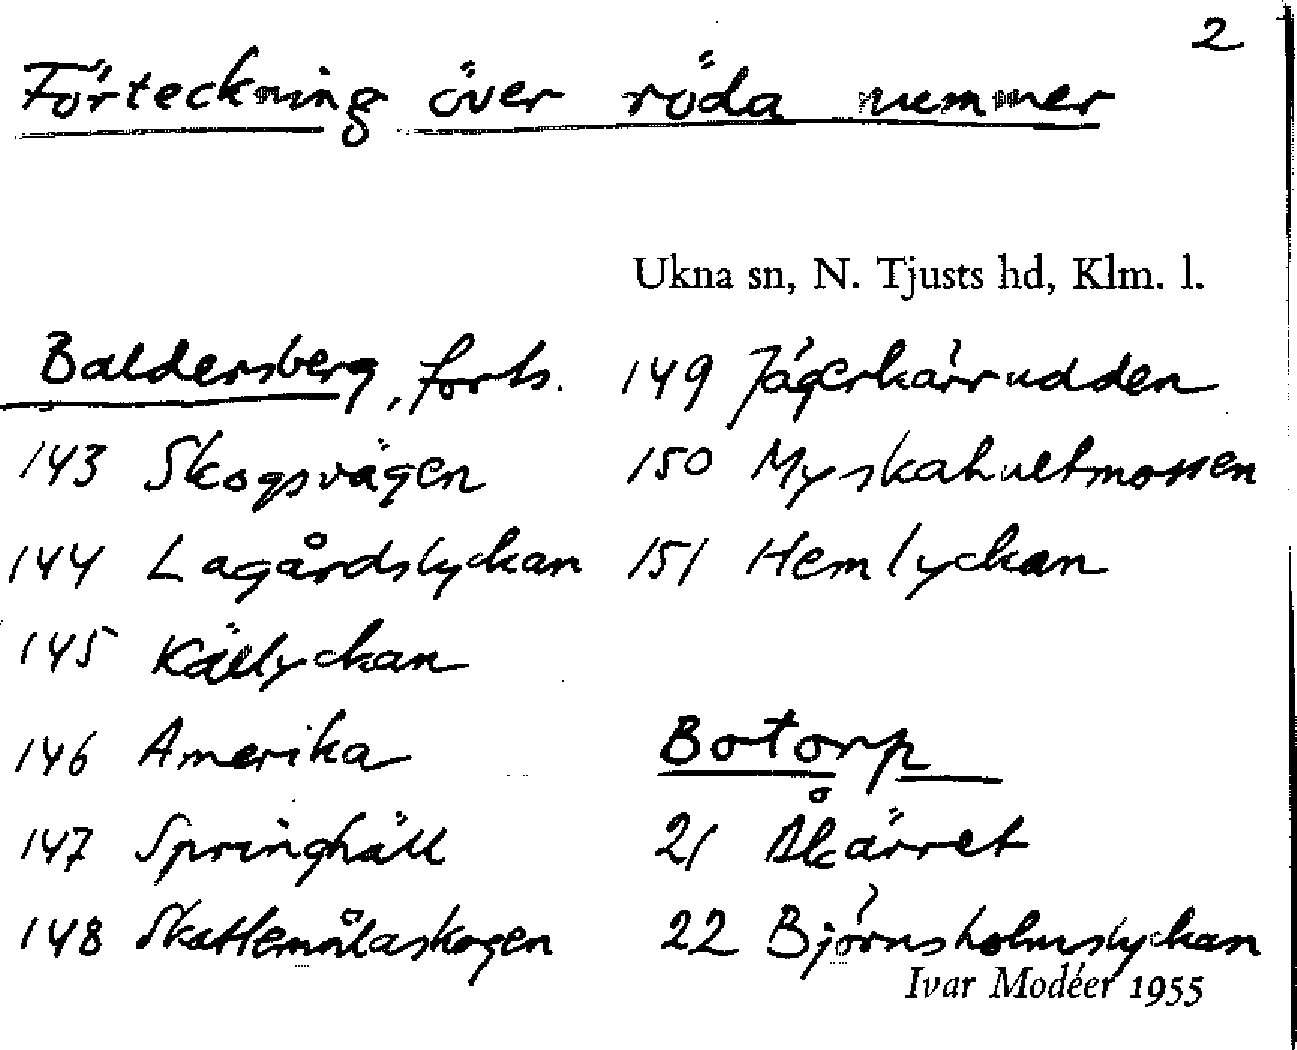 2
Förteckning över röda nummer
Ukna sn, N. Tjusts hd, Klm. l.
Baldersberg, forts.
143 Skogsvägen
144 Lagårdslyckan
145 Källyckan
146 Amerika
147 Springhäll
148 Skattemålaskogen
149 Jägerkärrudden
150 Myskahultmossen
151 Hemlyckan
Botorp
21 Åkärret
22 Björnsholmslyckan
Ivar Modéer 1955